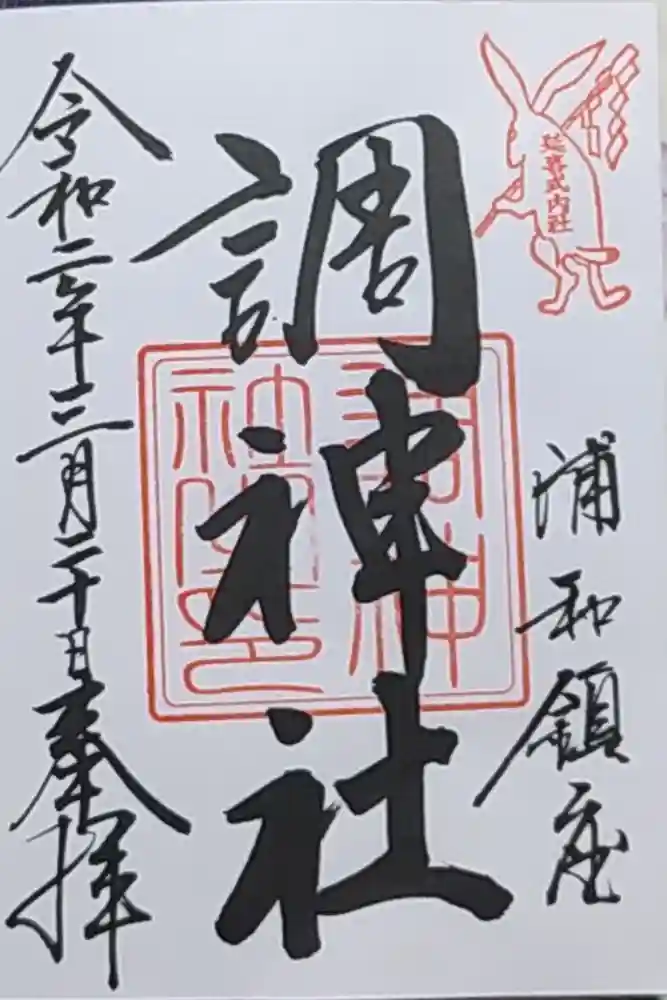 延喜式内社
浦和鎮座
調神社
令和二年三月二十日奉拝